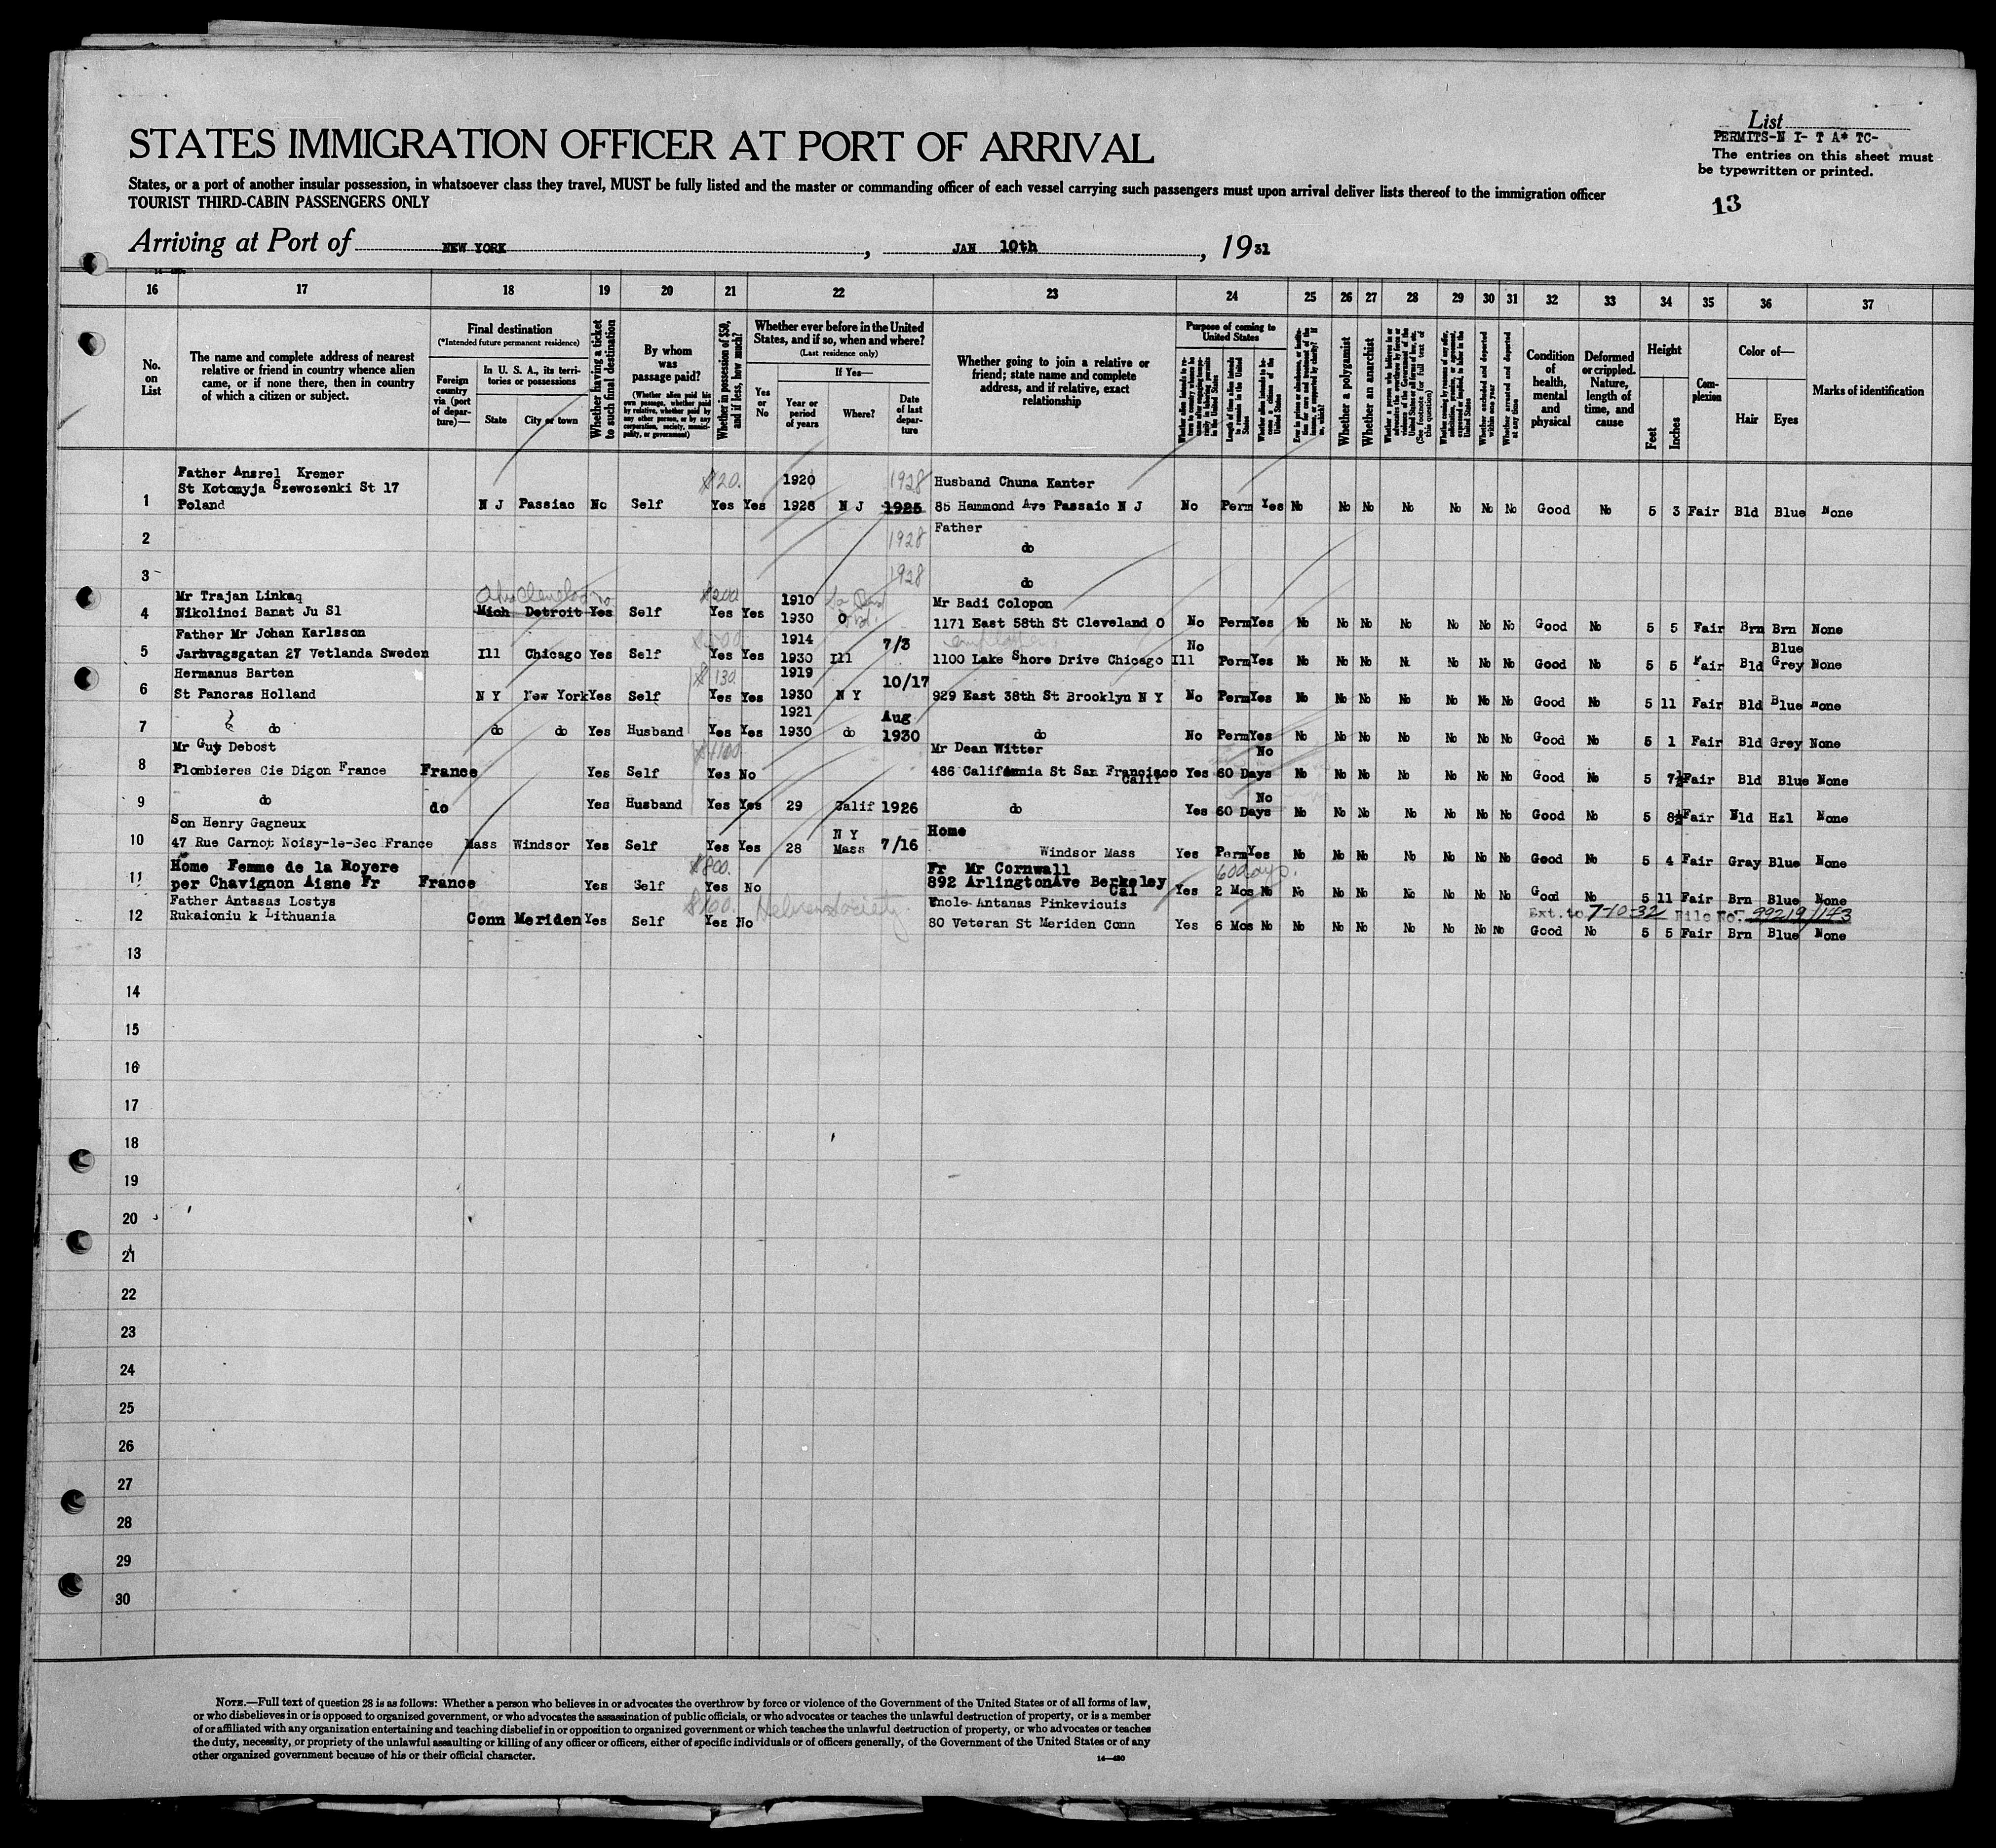 List
PERMITS-N I- T A* TC-
STATES IMMIGRATION OFFICER AT PORT OF ARRIVAL
The entries on this sheet must
be typewritten or printed.
States, or a port of another insular possession, in whatsoever class they travel, MUST be fully listed and the master or commanding officer of each vessel carrying such passengers must upon arrival deliver lists thereof to the immigration officer
TOURIST THIRD-CABIN PASSENGERS ONLY
13
Arriving at Port of NEW YORK, JAN 10th, 1931
16 17 18 19 20 21 22 23 24 25 26 27 28 29 30 31 32 33 34 35 36 37
No.
on
List
The name and complete address of nearest
relative or friend in country whence alien
came, or if none there, then in country
of which a citizen or subject.
Final destination
(*Intended future permanent residence)
Foreign
country
via (port
of depar-
ture)—
In U. S. A., its terri-
tories or possessions
State
City or town
Whether having a ticket
to such final destination
By whom
was
passage paid?
(Whether alien paid his
own passage, whether paid
by relative, whether paid by
any other person, or by any
corporation, society, munici-
pality, or government)
Whether in possession of $50,
and if less, how much?
Whether ever before in the United
States, and if so, when and where?
(Last residence only)
Yes
or
No
If Yes—
Year or
period
of years
Where?
Date
of last
depar-
ture
Whether going to join a relative or
friend; state name and complete
address, and if relative, exact
relationship
Purpose of coming to
United States
Whether alien intends to re-
turn to country whence he
came after engaging tempo-
rarily in laboring pursuits
in the United States
Length of time alien intends
to remain in the United
States
Whether alien intends to be-
come a citizen of the
United States
Whether a polygamist
Whether an anarchist
(See footnote for full text of
this question)
Whether arrested and deported
at any time
Condition
of
health,
mental
and
physical
Deformed
or crippled.
Nature,
length of
time, and
cause
Height
Feet
Inches
Com-
plexion
Color of—
Hair
Eyes
Marks of identification
Father Ansrel Kremer $20. 1920 1928 Husband Chuna Kanter
St Kotomyja Szewozenki St 17
1 Poland N J Passiac No Self Yes Yes 1928 N J 1925 85 Hammond Ave Passaic N J No Perm Yes No No No No No No No Good No 5 3 Fair Bld Blue None
Father
2 1928 do
3 1928 do
Mr Trajan Linkaq $200 1910 Mr Badi Colopon
4 Nikolinci Banat Ju Sl Mich Detroit Yes Self Yes Yes 1930 O 1171 East 58th St Cleveland O No Perm Yes No No No No No No No Good No 5 5 Fair Brn Brn None
Father Mr Johan Karlsson 1914 7/3 No Blue
5 Jarnvagsgatan 27 Vetlanda Sweden Ill Chicago Yes Self Yes Yes 1930 Ill 1100 Lake Shore Drive Chicago Ill Perm Yes No No No N. No No No Good No 5 5 Fair Bld Grey None
Hermanus Barten $130 1919 10/17
6 St Pancras Holland N Y New York Yes Self Yes Yes 1930 N Y 929 East 38th St Brooklyn N Y No Perm Yes No No No No No No No Good No 5 11 Fair Bld Blue None
1921 Aug
7 do do do Yes Husband Yes Yes 1930 do 1930 do No Perm Yes No No No No No No No Good No 5 1 Fair Bld Grey None
Mr Guy Debost $1100 Mr Dean Witter No
8 Plombieres Cie Digon France France Yes Self Yes No 486 California St San Francisco Calif Yes 60 Days No No No No No No No Good No 5 7½ Fair Bld Blue None
No
9 do do Yes Husband Yes Yes 29 Calif 1926 do Yes 60 Days No No No No No No No Good No 5 8½ Fair Bld Hzl None
Son Henry Gagneux N Y Home
10 47 Rue Carnot Noisy-le-Sec France Mass Windsor Yes Self Yes Yes 28 Mass 7/16 Windsor Mass Yes Perm Yes No No No No No No No Good No 5 4 Fair Gray Blue None
Home Femme de la Royere $800. Fr Mr Cornwall 60 days.
11 per Chavignon Aisne Fr France Yes Self Yes No 892 Arlington Ave Berkeley Cal Yes 2 Mos No No No No No No No No Good No 5 11 Fair Brn Blue None
Father Antasas Lostys $100. Hebrew Society Uncle-Antanas Pinkevicuis Ext. to 7-10-32 File No. 99219/143
12 Rukaioniu k Lithuania Conn Meriden Yes Self Yes No 80 Veteran St Meriden Conn Yes 6 Mos No No No No No No No No Good No 5 5 Fair Brn Blue None
13
14
15
16
17
18
19
20
21
22
23
24
25
26
27
28
29
30
NOTE.—Full text of question 28 is as follows: Whether a person who believes in or advocates the overthrow by force or violence of the Government of the United States or of all forms of law,
or who disbelieves in or is opposed to organized government, or who advocates the assassination of public officials, or who advocates or teaches the unlawful destruction of property, or is a member
of or affiliated with any organization entertaining and teaching disbelief in or opposition to organized government or which teaches the unlawful destruction of property, or who advocates or teaches
the duty, necessity, or propriety of the unlawful assaulting or killing of any officer or officers, either of specific individuals or of officers generally, of the Government of the United States or of any
other organized government because of his or their official character.
14—430